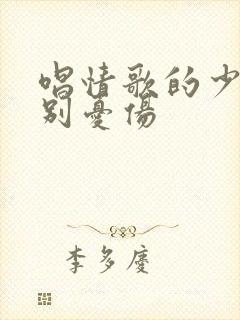 唱情歌的少
别憂傷
李多慶